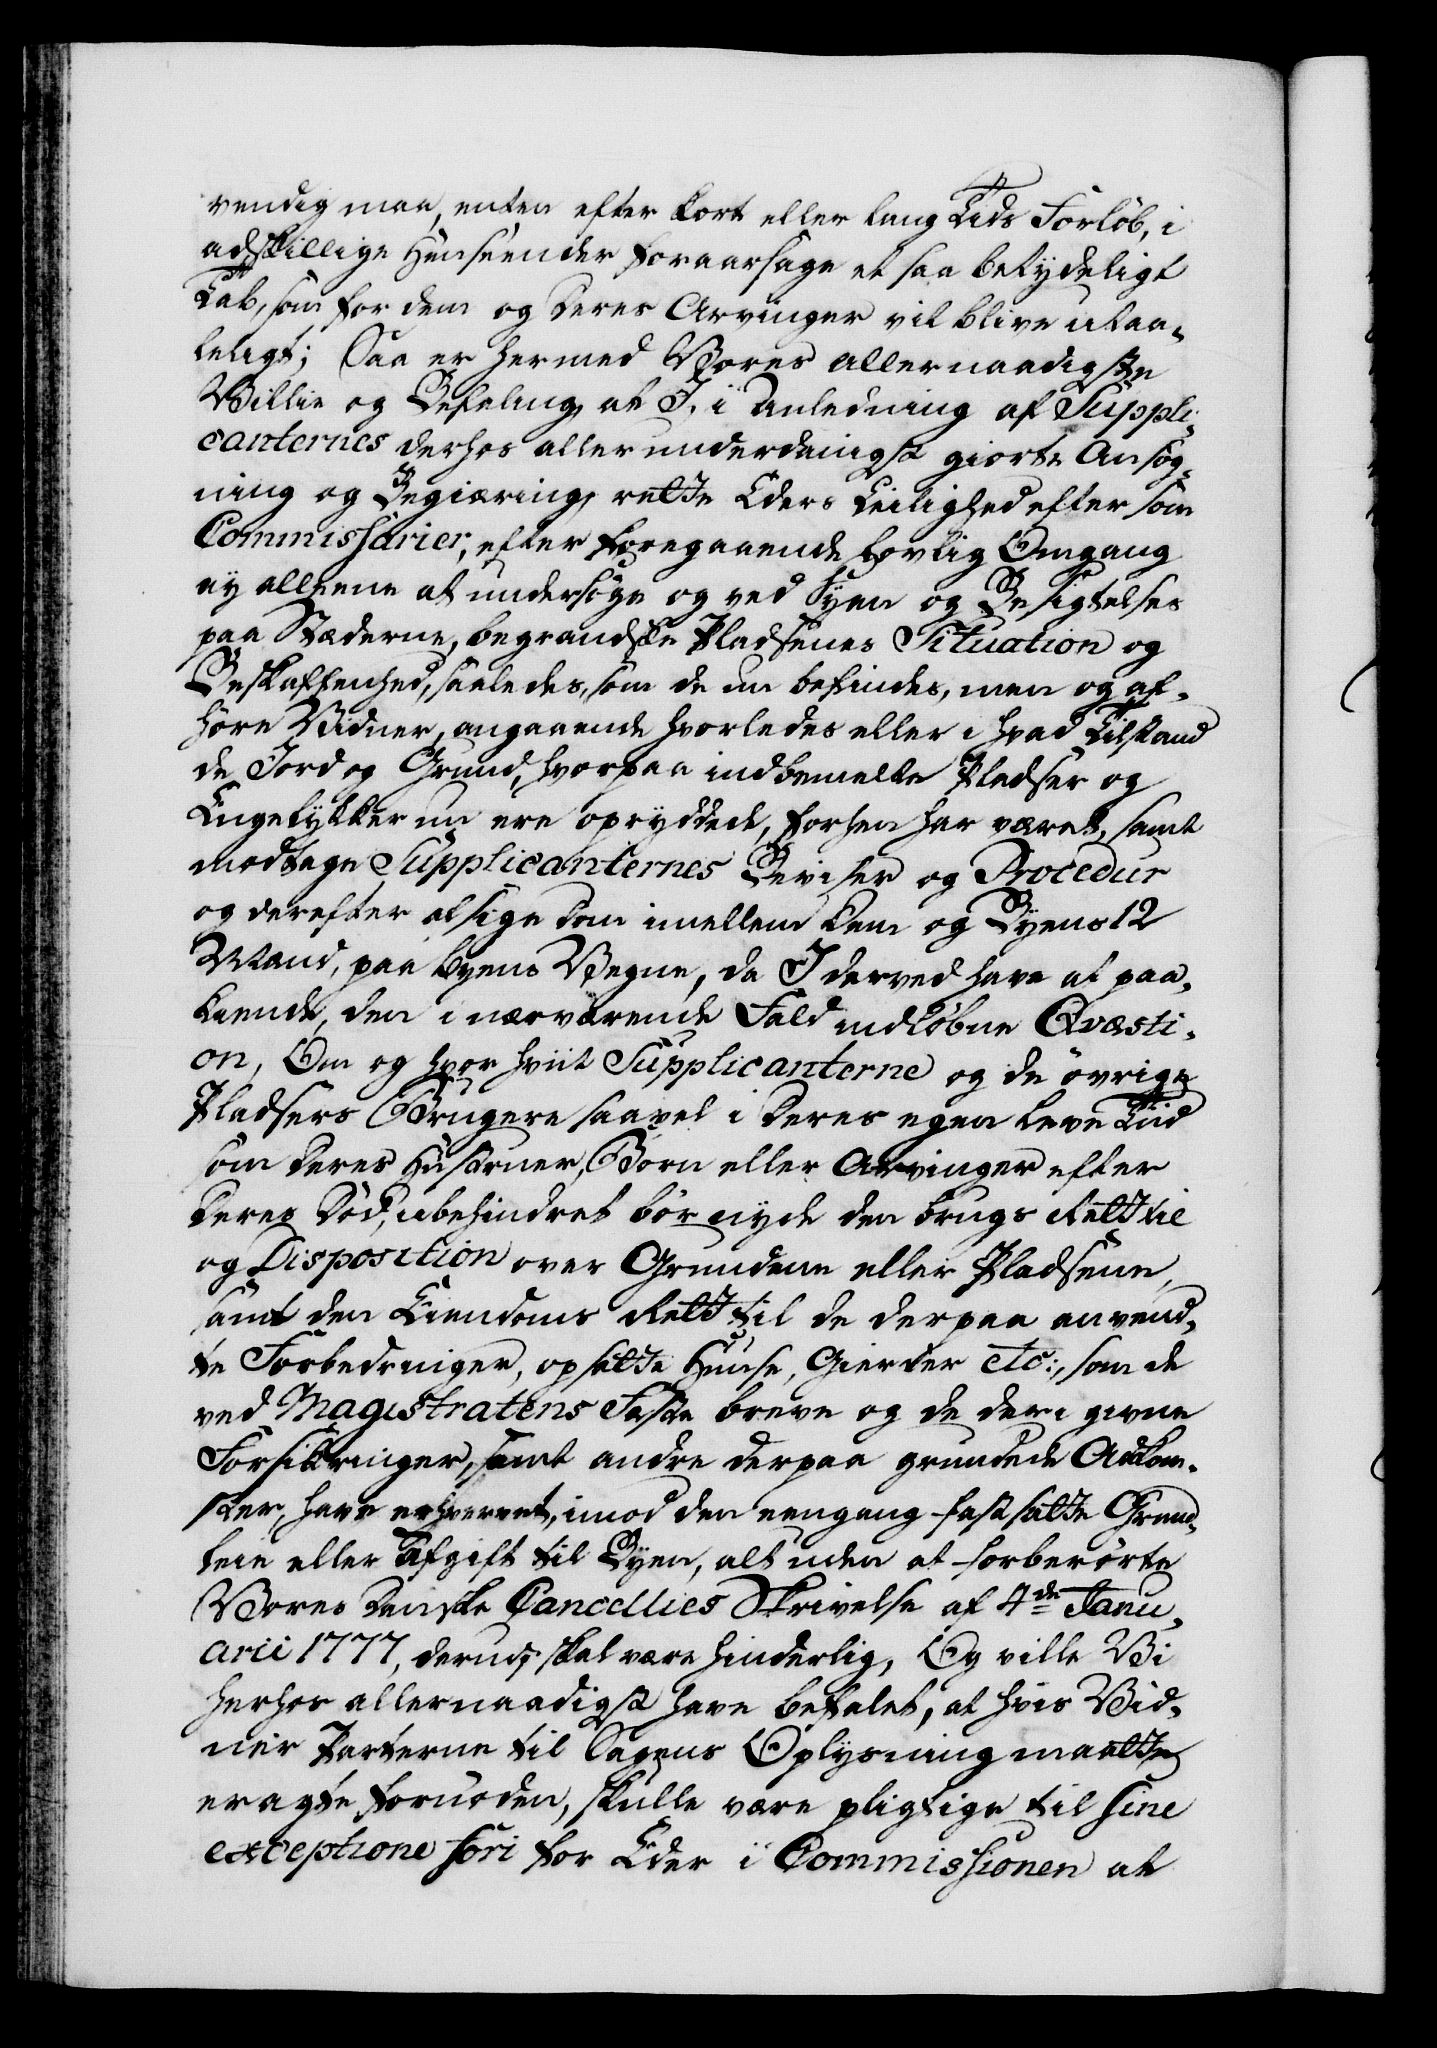 vendig maa, enten efter kort eller lang Tids Forløb, i
adskillige Henseender foraarsage et saa betydeligt
Tab, som for dem og deres Arvinger vil blive utaa-
leligt; Saa er hermed Vores allernaadigste
Villie og Befaling, at I, i Anledning af Suppli-
canternes derhos allerunderdanigst giorte Ansøg-
ning og Begiæring, rette Eders Leilighed efter som
Commissarier, efter foregaaende lovlig Omgang
ey alleene at undersøge og ved Syen og Besigtelses
paa Stæderne, begrandske Pladsenes Situation og
Beskaffenhed, saaledes, som de nu befindes, men og af-
høre Vidner, angaaende hvorledes eller i hvad Tilstand
de Jord og Grund, hvorpaa indbemelte Pladser og
Engestykker nu ere opryddede, forhen har været, samt
modtage Supplicanternes Beviser og Procedur
og derefter afsige Dom imellem dem og Byens 12
Mænd, paa Byens Vegne, da I derved have at paa-
kiende, den i nærværende Fald indløbne Qvæsti-
on, Om og hvor hviit Supplicanterne og de øvrige
Pladsers Brugere saavel i deres egen Leve Tiid
som deres Hustruer, Børn eller Arvinger efter
deres Død, ubehindret bør nyde den brugs Rett til
og Disposition over Grundene eller Pladsene,
samt den Eiendoms Rett til de derpaa anvend-
te Forbedringer, opsatte Huuse, Gierder etc:, som de
ved Magistratens Fæste breve og de deri givne
Forsikringer, samt andre derpaa grundede Adkom-
ster, have erhvervet, imod den eengang fastsatte Grund-
leie eller Afgift til Byen, alt uden at forberørte
Vores danske Cancellies Skrivelse af 4de Janu-
arii 1777, derudj skal være hinderlig, Og ville Vi
herhos allernaadigst have befalet, at hvis Vid-
ner Parterne til Sagens Oplysning maatte
eragte fornøden, skulle være pligtige til sine
exceptione fori for Eder i Commissionen at